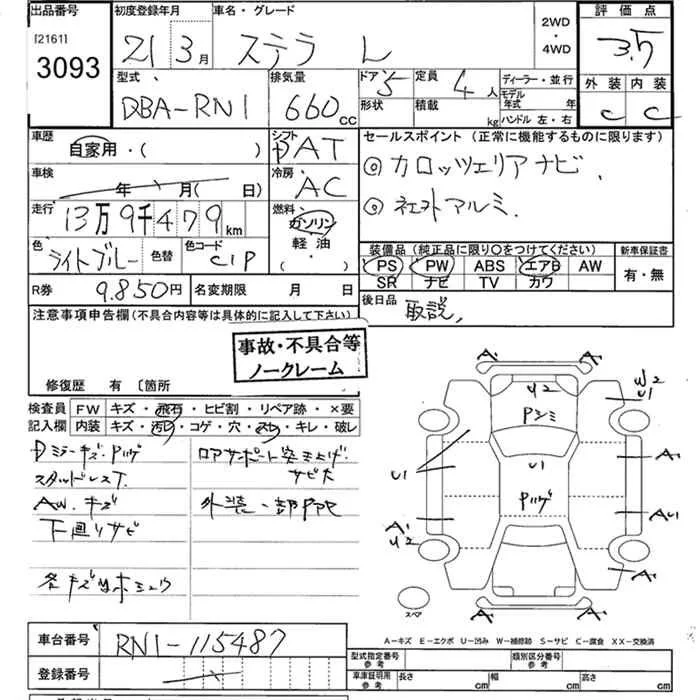 出品番号
[2161]
3093
初度登録年月
21 3月
車名・グレード
ステラ L
2WD
・
4WD
評価点
3.5
外装 内装
C C
型式
DBA-RN1
排気量
660 cc
ドア 5
形状
定員 4人
積載 kg
ディーラー・並行
モデル
年式 年
ハンドル 左・右
車歴
自家用・( )
シフト
AT
車検
年 月( 日)
冷房
AC
走行
13万9千479km
燃料
ガソリン
軽油
・( )
色
ライトブルー
色替
色コード
C1P
R券 9.850円
名変期限 月 日
セールスポイント(正常に機能するものに限ります)
◎カロッツェリアナビ.
◎社外アルミ.
装備品(純正品に限り○をつけてください)
PS PW ABS エアB AW
SR ナビ TV カワ
新車保証書
有・無
後日品
取説,
注意事項申告欄(不具合内容等は具体的に記入して下さい)
事故・不具合等
ノークレーム
修復歴 有 〔箇所
検査員
記入欄
FW キズ・飛石・ヒビ割・リペア跡・×要
内装 キズ・汚レ・コゲ・穴・スレ・キレ・破レ
スタッドレスT.
AW. キズ
下廻りサビ
ロアサポート突上げ
サビ大
A
A
U2
Pシミ
W2
U1
U1
U1
A
Pハゲ
A1
U2
AU1
A
A
A
スペア
A-キズ E-エクボ U-凹み W-補修跡 S-サビ C-腐食 XX-交換済
車台番号
RN1-115487
登録番号
型式指定番号
参考
類別区分番号
参考
車庫証明用
参考
長さ cm
幅 cm
高さ cm